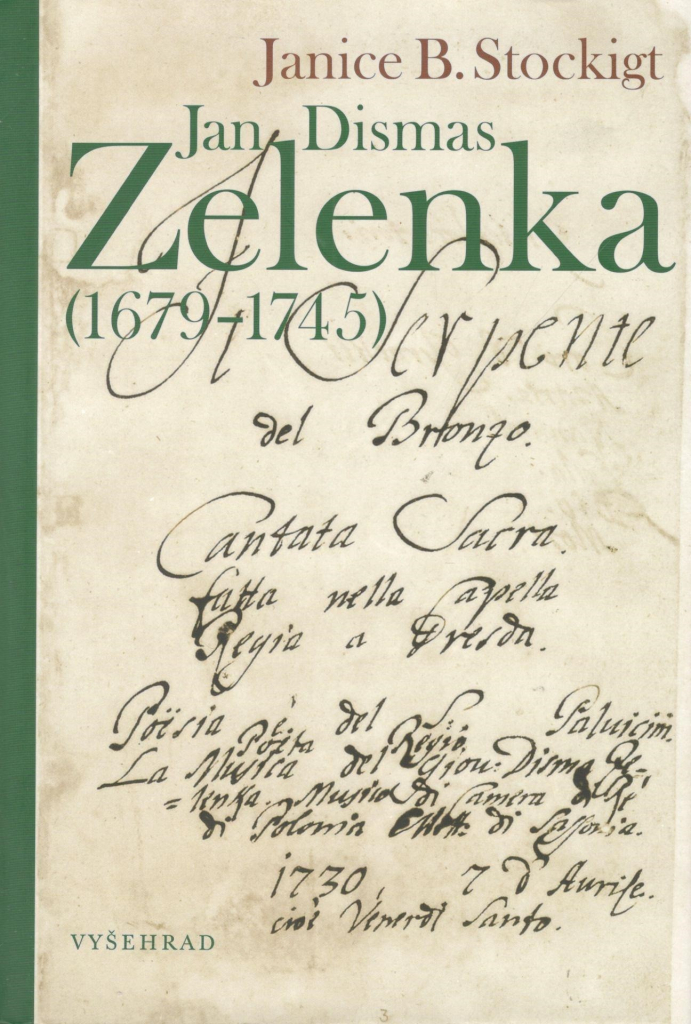 Janice B. Stockigt
Jan Dismas
Zelenka
(1679–1745)
Il Serpente
del Bronzo.
Cantata Sacra.
fatta nella Capella
Regia a Dresda.
Poësia è del S: Paluicini.
Poëta Regio.
La Musica del Giou: Disma Ze-
=lenka. Musico di Camera del Rè
di Polonia Elett: di Sassonia.
1730, 7 d' Aurile.
cioè Venerdì Santo.
VYŠEHRAD
3